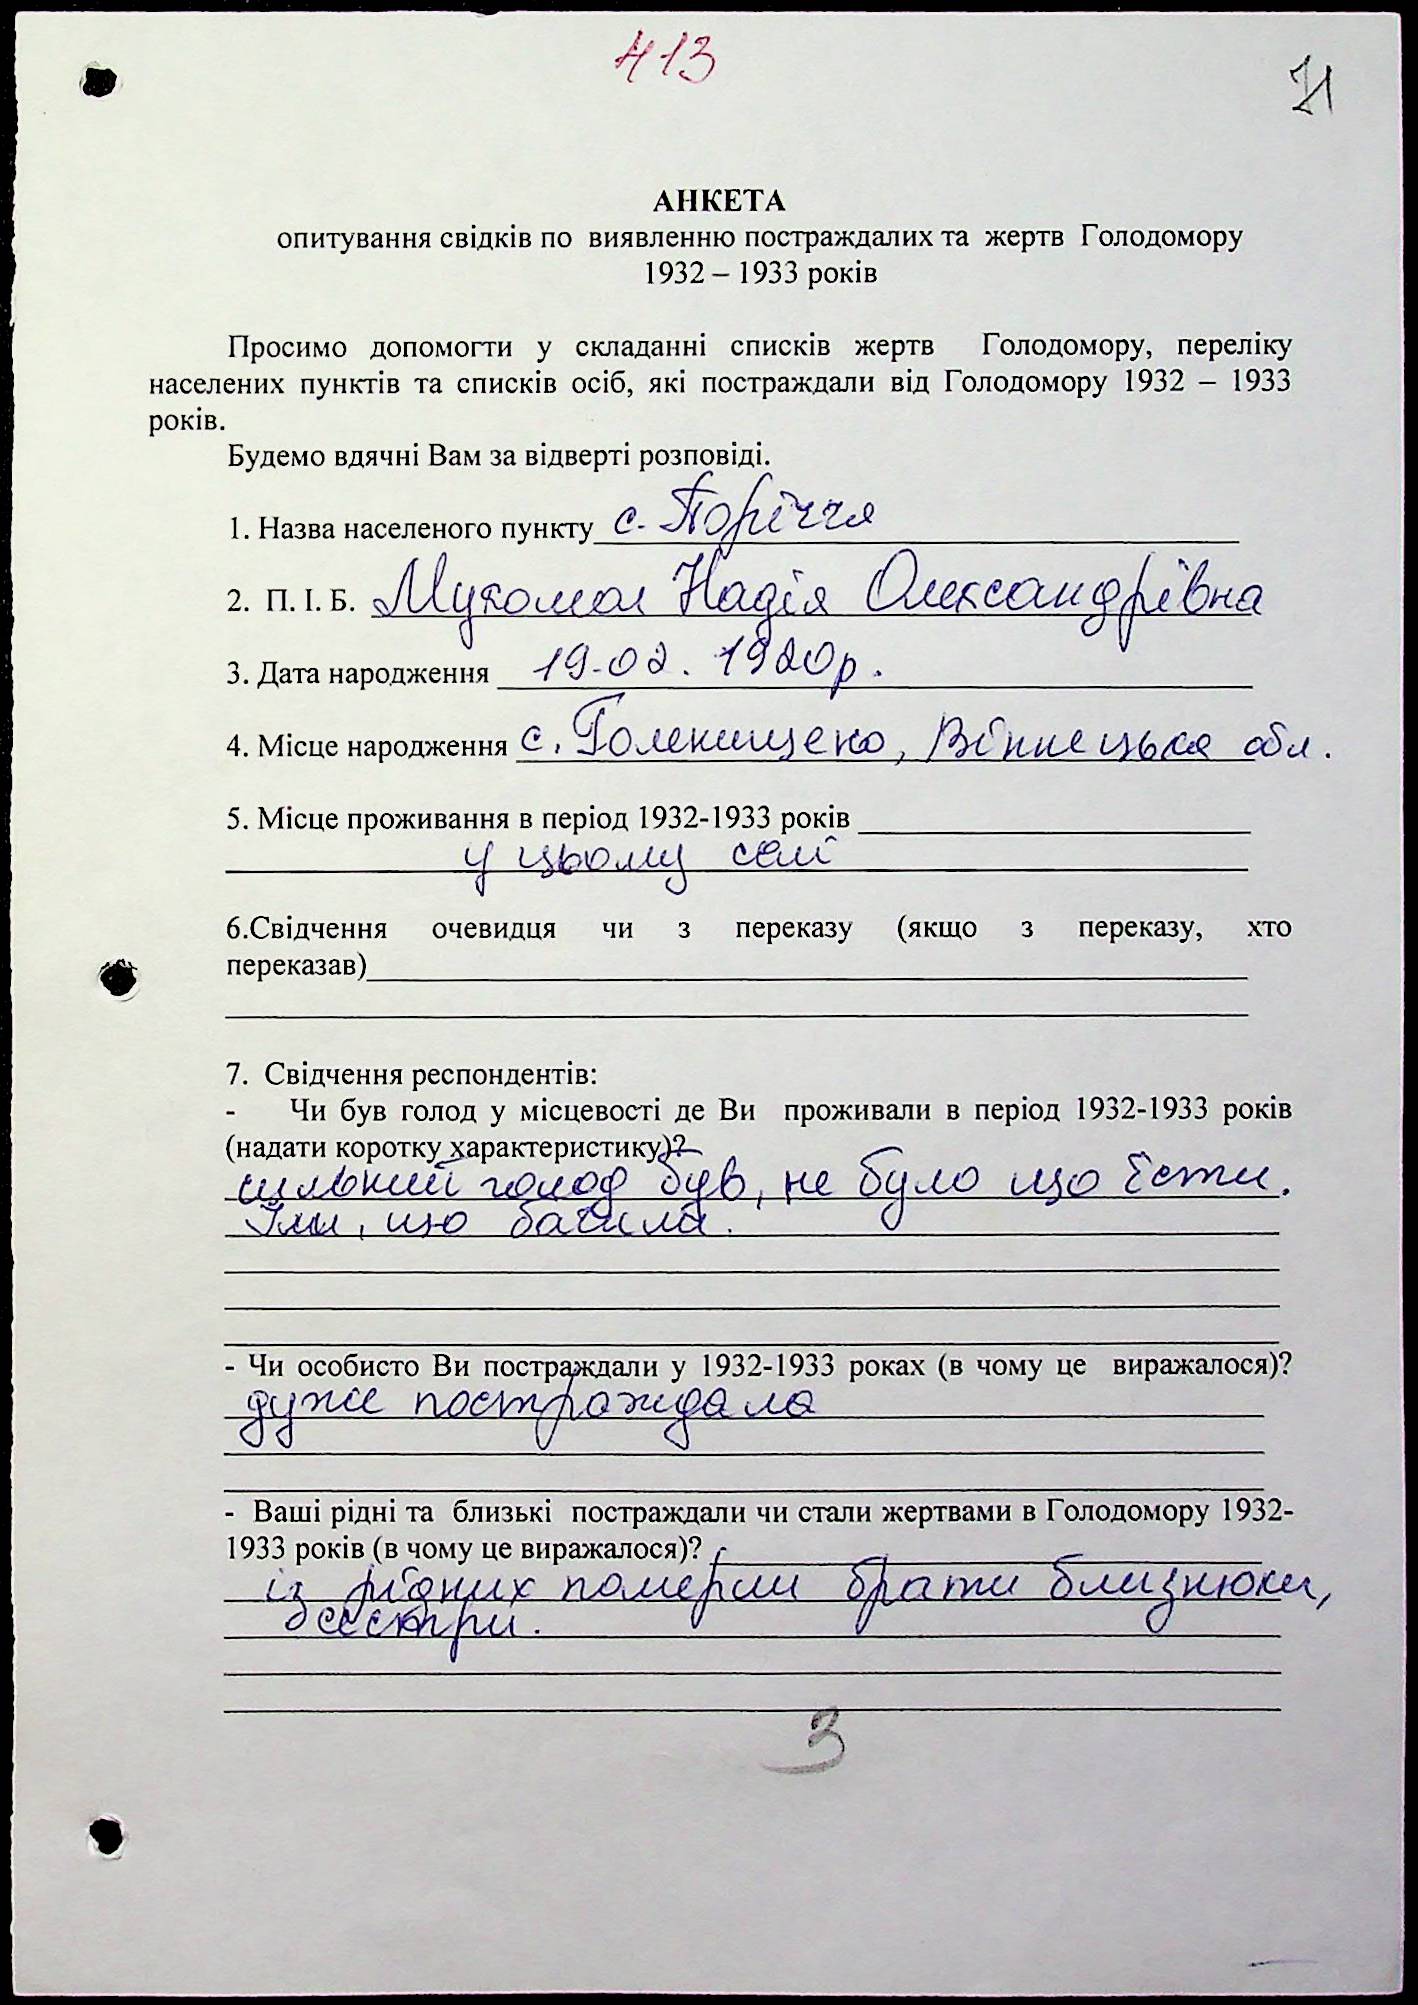 413
71
АНКЕТА
опитування свідків по виявленню постраждалих та жертв Голодомору
1932 – 1933 років
Просимо допомогти у складанні списків жертв Голодомору, переліку
населених пунктів та списків осіб, які постраждали від Голодомору 1932 – 1933
років.
Будемо вдячні Вам за відверті розповіді.
1. Назва населеного пункту с. Поріччя
2. П. І. Б. Мукомол Надія Олександрівна
3. Дата народження 19.02. 1920р.
4. Місце народження с. Голенищево, Вінницька обл.
5. Місце проживання в період 1932-1933 років
у цьому селі
6.Свідчення очевидця чи з переказу (якщо з переказу, хто
переказав)
7. Свідчення респондентів:
- Чи був голод у місцевості де Ви проживали в період 1932-1933 років
(надати коротку характеристику)?
сильний голод був, не було що їсти.
Їли, що бачила.
- Чи особисто Ви постраждали у 1932-1933 роках (в чому це виражалося)?
дуже постраждала
- Ваші рідні та близькі постраждали чи стали жертвами в Голодомору 1932-
1933 років (в чому це виражалося)?
із рідних померли брати близнюки,
сестри.
3